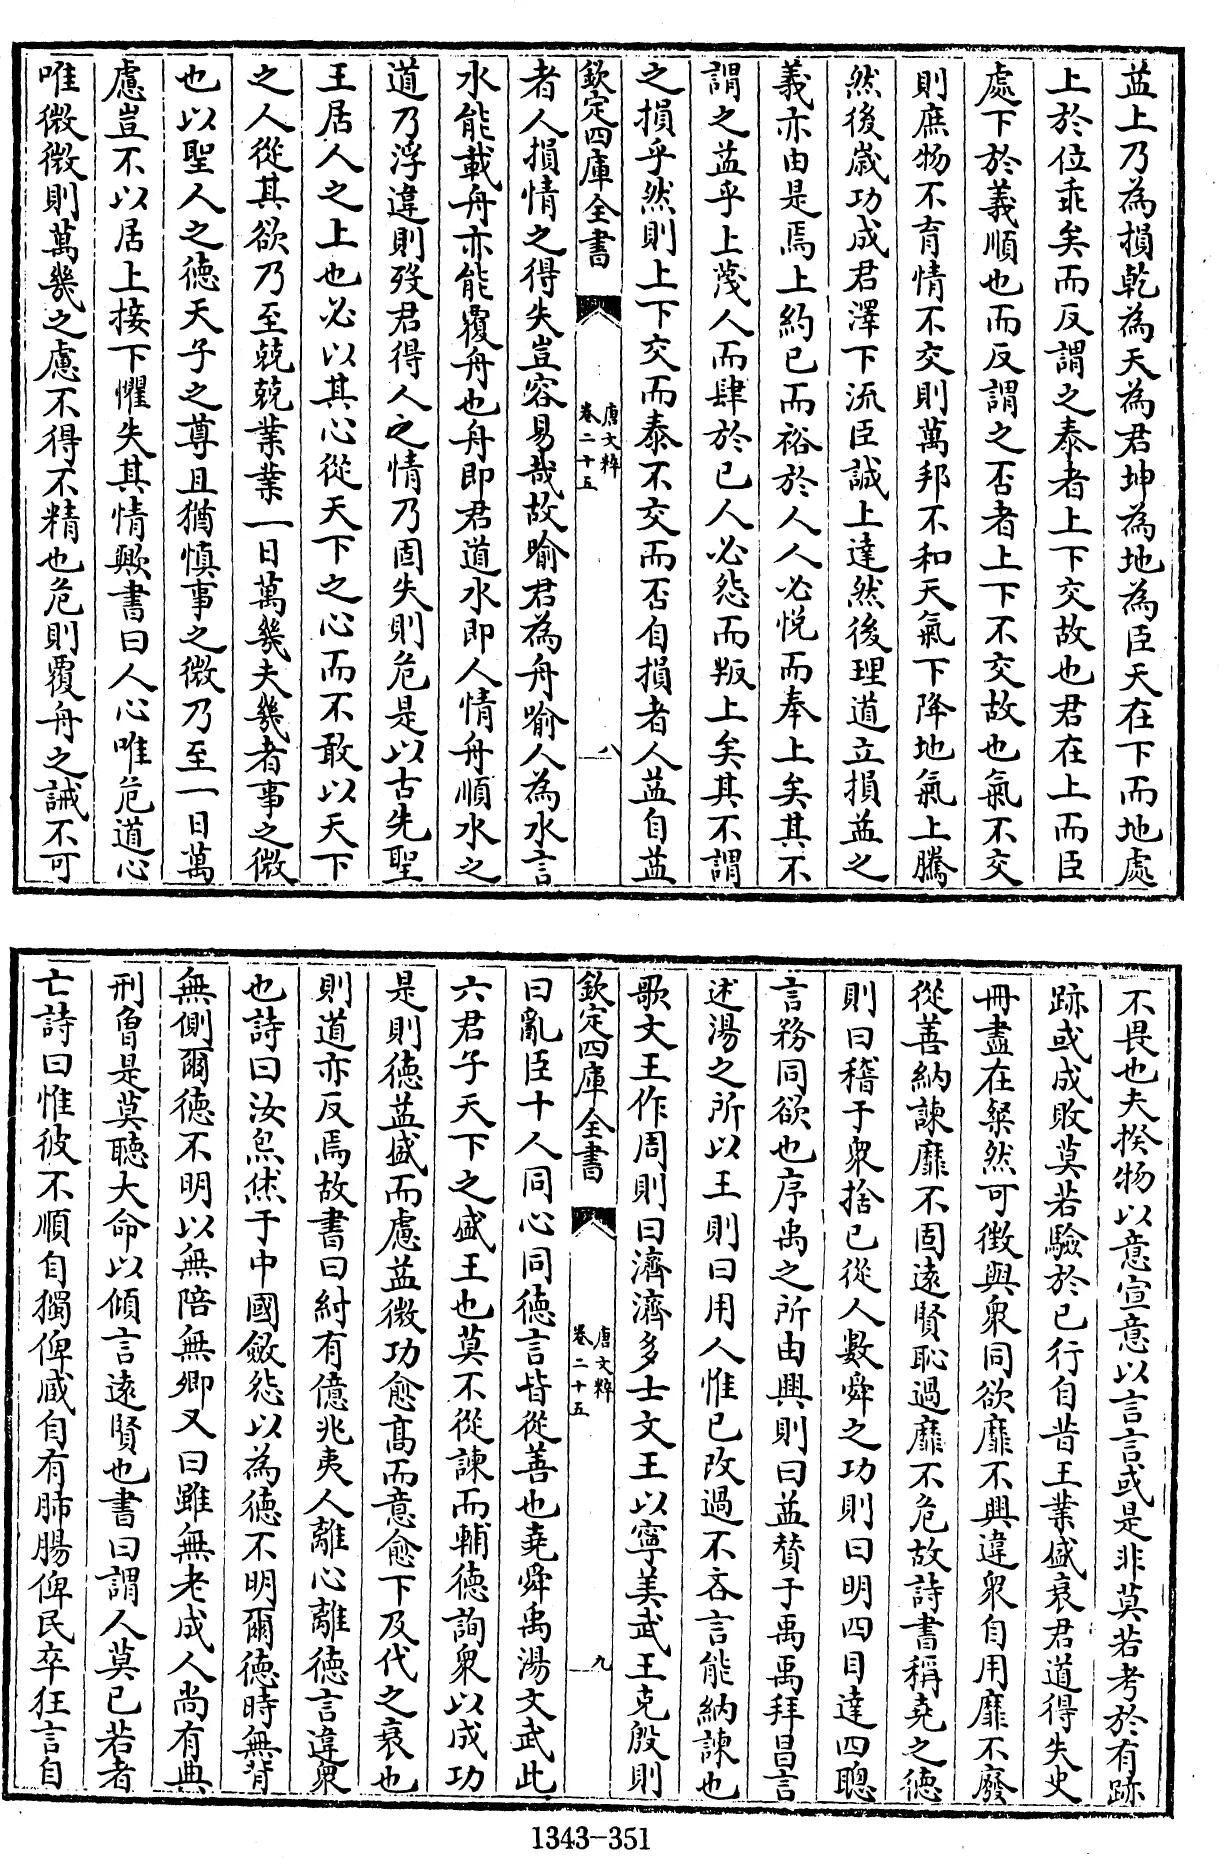 益上乃為損乾為天為君坤為地為臣天在下而地處
上於位乖矣而反謂之泰者上下交故也君在上而臣
處下於義順也而反謂之否者上下不交故也氣不交
則庶物不育情不交則萬邦不和天氣下降地氣上騰
然後嵗功成君澤下流臣誠上達然後理道立損益之
義亦由是焉上約已而裕於人人必悦而奉上矣其不
謂之益乎上蔑人而肆於已人必怨而叛上矣其不謂
之損乎然則上下交而泰不交而否自損者人益自益
欽定四庫全書
唐文粹
卷二十五
八
者人損情之得失豈容易哉故喻君為舟喻人為水言
水能載舟亦能覆舟也舟即君道水即人情舟順水之
道乃浮違則殁君得人之情乃固失則危是以古先聖
王居人之上也必以其心從天下之心而不敢以天下
之人從其欲乃至兢兢業業一日萬幾夫幾者事之微
也以聖人之徳天子之尊且猶慎事之微乃至一日萬
慮豈不以居上接下懼失其情歟書曰人心唯危道心
唯微微則萬幾之慮不得不精也危則覆舟之誡不可
不畏也夫揆物以意宣意以言言或是非莫若考於有跡
跡或成敗莫若驗於已行自昔王業盛衰君道得失史
冊盡在粲然可徴與衆同欲靡不興違衆自用靡不廢
從善納諫靡不固逺賢恥過靡不危故詩書稱堯之徳
則曰稽于衆捨已從人數舜之功則曰明四目達四聰
言務同欲也序禹之所由興則曰益賛于禹禹拜昌言
述湯之所以王則曰用人惟已改過不吝言能納諫也
歌文王作周則曰濟濟多士文王以寧美武王克殷則
欽定四庫全書
唐文粹
卷二十五
九
曰亂臣十人同心同徳言皆從善也堯舜禹湯文武此
六君子天下之盛王也莫不從諫而輔徳詢衆以成功
是則徳益盛而慮益微功愈髙而意愈下及代之衰也
則道亦反焉故書曰紂有億兆夷人離心離徳言違衆
也詩曰汝炰烋于中國斂怨以為徳不明爾徳時無背
無側爾徳不明以無陪無卿又曰雖無老成人尚有典
刑曽是莫聽大命以傾言逺賢也書曰謂人莫已若者
亡詩曰惟彼不順自獨俾臧自有肺腸俾民卒狂言自
1343-351